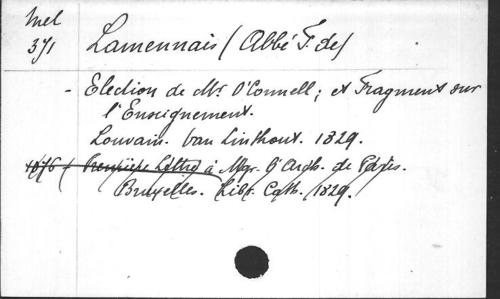 Mel
371
Lamennais (Abbé F. de)
- Election de Mr. O'Connell; et Fragment sur
l'Enseignement.
Louvain. Van Linthout. 1829.
1076 ( Première Lettre à Mgr. l'Arch. de Paris.
Bruxelles. Libr. Cath. 1829.